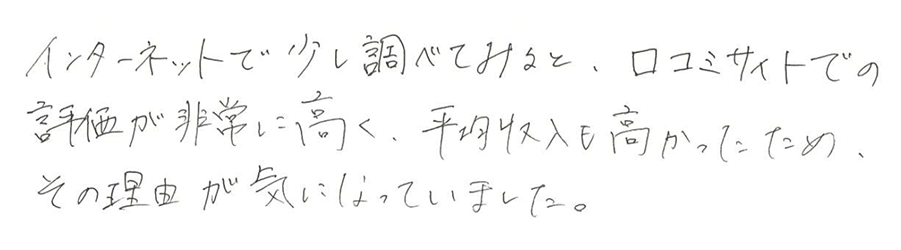 インターネットで少し調べてみると、口コミサイトでの
評価が非常に高く、平均収入も高かったため、
その理由が気になっていました。